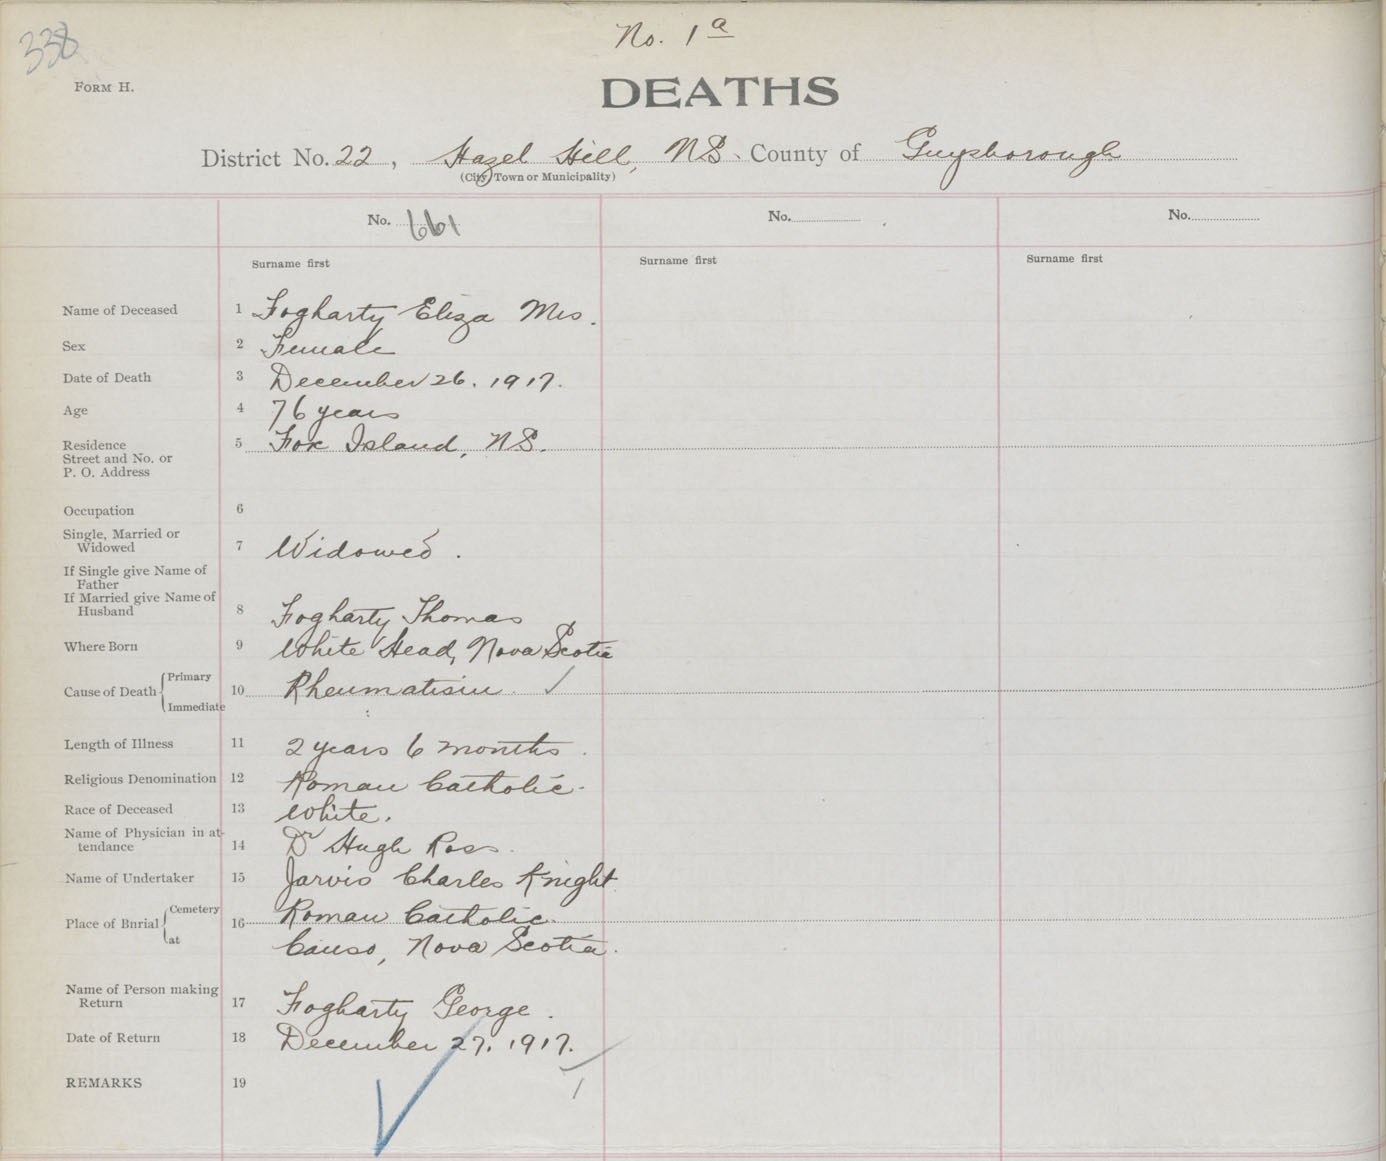 338
No. 1a
FORM H.
DEATHS
District No. 22, Hazel Hill, NS. County of Guysborough
(City Town or Municipality)
No. 661 No. No.
Surname first Surname first Surname first
Name of Deceased 1 Fogharty Eliza Mrs.
Sex 2 Female
Date of Death 3 December 26. 1917.
Age 4 76 years
Residence 5 Fox Island, NS.
Street and No. or
P. O. Address
Occupation 6
Single, Married or
Widowed 7 Widowed.
If Single give Name of
Father
If Married give Name of
Husband 8 Fogharty Thomas
Where Born 9 White Head, Nova Scotia
Cause of Death { Primary
10 Rheumatism ✓
Immediate
Length of Illness 11 2 years 6 months.
Religious Denomination 12 Roman Catholic.
Race of Deceased 13 White.
Name of Physician in at-
tendance 14 Dr Hugh Ross.
Name of Undertaker 15 Jarvis Charles Knight
Place of Bnrial { Cemetery 16 Roman Catholic.
at Canso, Nova Scotia.
Name of Person making
Return 17 Fogharty George.
Date of Return 18 December 27. 1917.
REMARKS 19